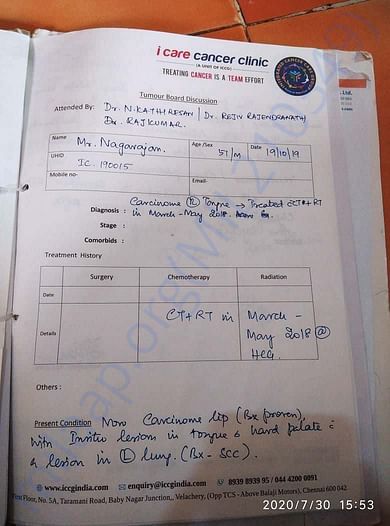 i care cancer clinic
(A UNIT OF ICCG)
TREATING CANCER IS A TEAM EFFORT
Tumour Board Discussion
Attended By: Dr. N. KATHIRESAN / Dr. REJIV RAJENDRANATH
Dr. RAJKUMAR.
Name Mr. Nagarajan. Age /Sex 57/M Date 19/10/19
UHID IC. 190015
Mobile no- Email-
Carcinoma (R) Tongue → Treated CCT+RT
Diagnosis : in March - May 2018.
Stage :
Comorbids :
Treatment History
Surgery Chemotherapy Radiation
Date
Details CT+RT in March - May 2018 @ HCG.
Others :
Present Condition Now Carcinoma lip (Bx proven),
with Insitu lesion in tongue & hard palate c
a lesion in (L) lung. (Bx - SCC).
www.iccgindia.com enquiry@iccgindia.com 8939 8939 95 / 044 4200 0091
First Floor, No. 5A, Taramani Road, Baby Nagar Junction,, Velachery, (Opp TCS - Above Balaji Motors), Chennai 600 042
2020/7/30 15:53